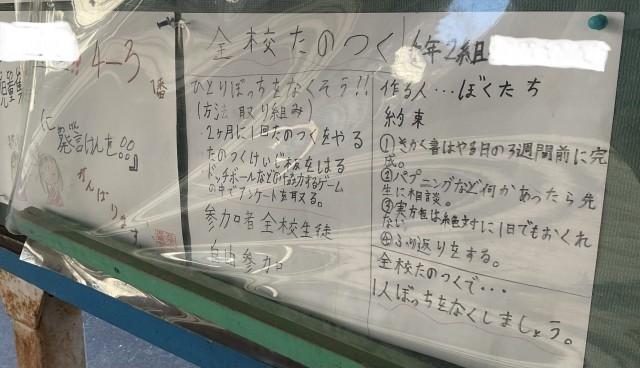 4-3
に
発言けんを。。』
がんばります
全校たのつく
6年2組
ひとりぼっちをなくそう!!
(方法 取り組み)
・2ヶ月に1回たのつくをやる
たのつくけいじ板をはる
ドッチボールなどの協力するゲーム
の中でアンケートを取る。
参加者 全校生徒
自由参加
作る人…ぼくたち
約束
①きかく書はやる日の3週間前に完
成。
②ハプニングなど何かあったら先
生に相談。
③実方也は絶対に1日でもおくれ
ない
④ふり返りをする。
全校たのつくで…
1人ぼっちをなくしましょう。